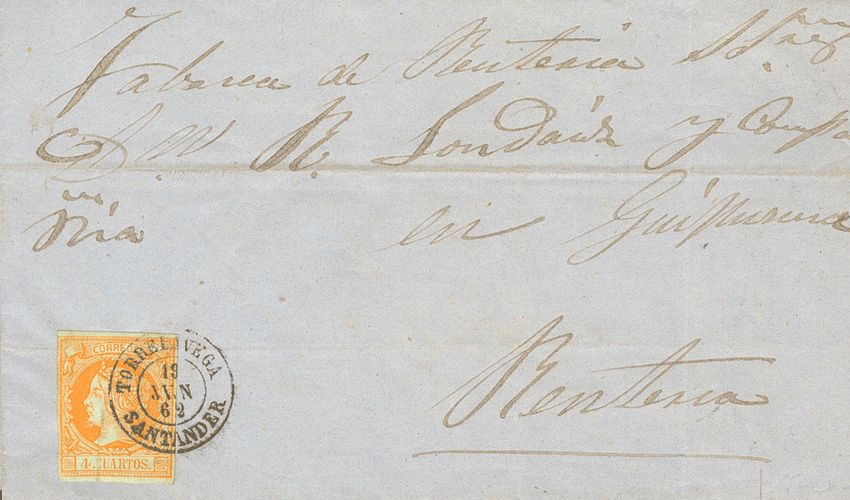 Fabrica de Renteria S.res
D.n R. Londaiz y Compa
ñia en Guipuzcua
Renteria
CORREOS
4. CUARTOS.
TORRELAVEGA
19
JUN
62
SANTANDER